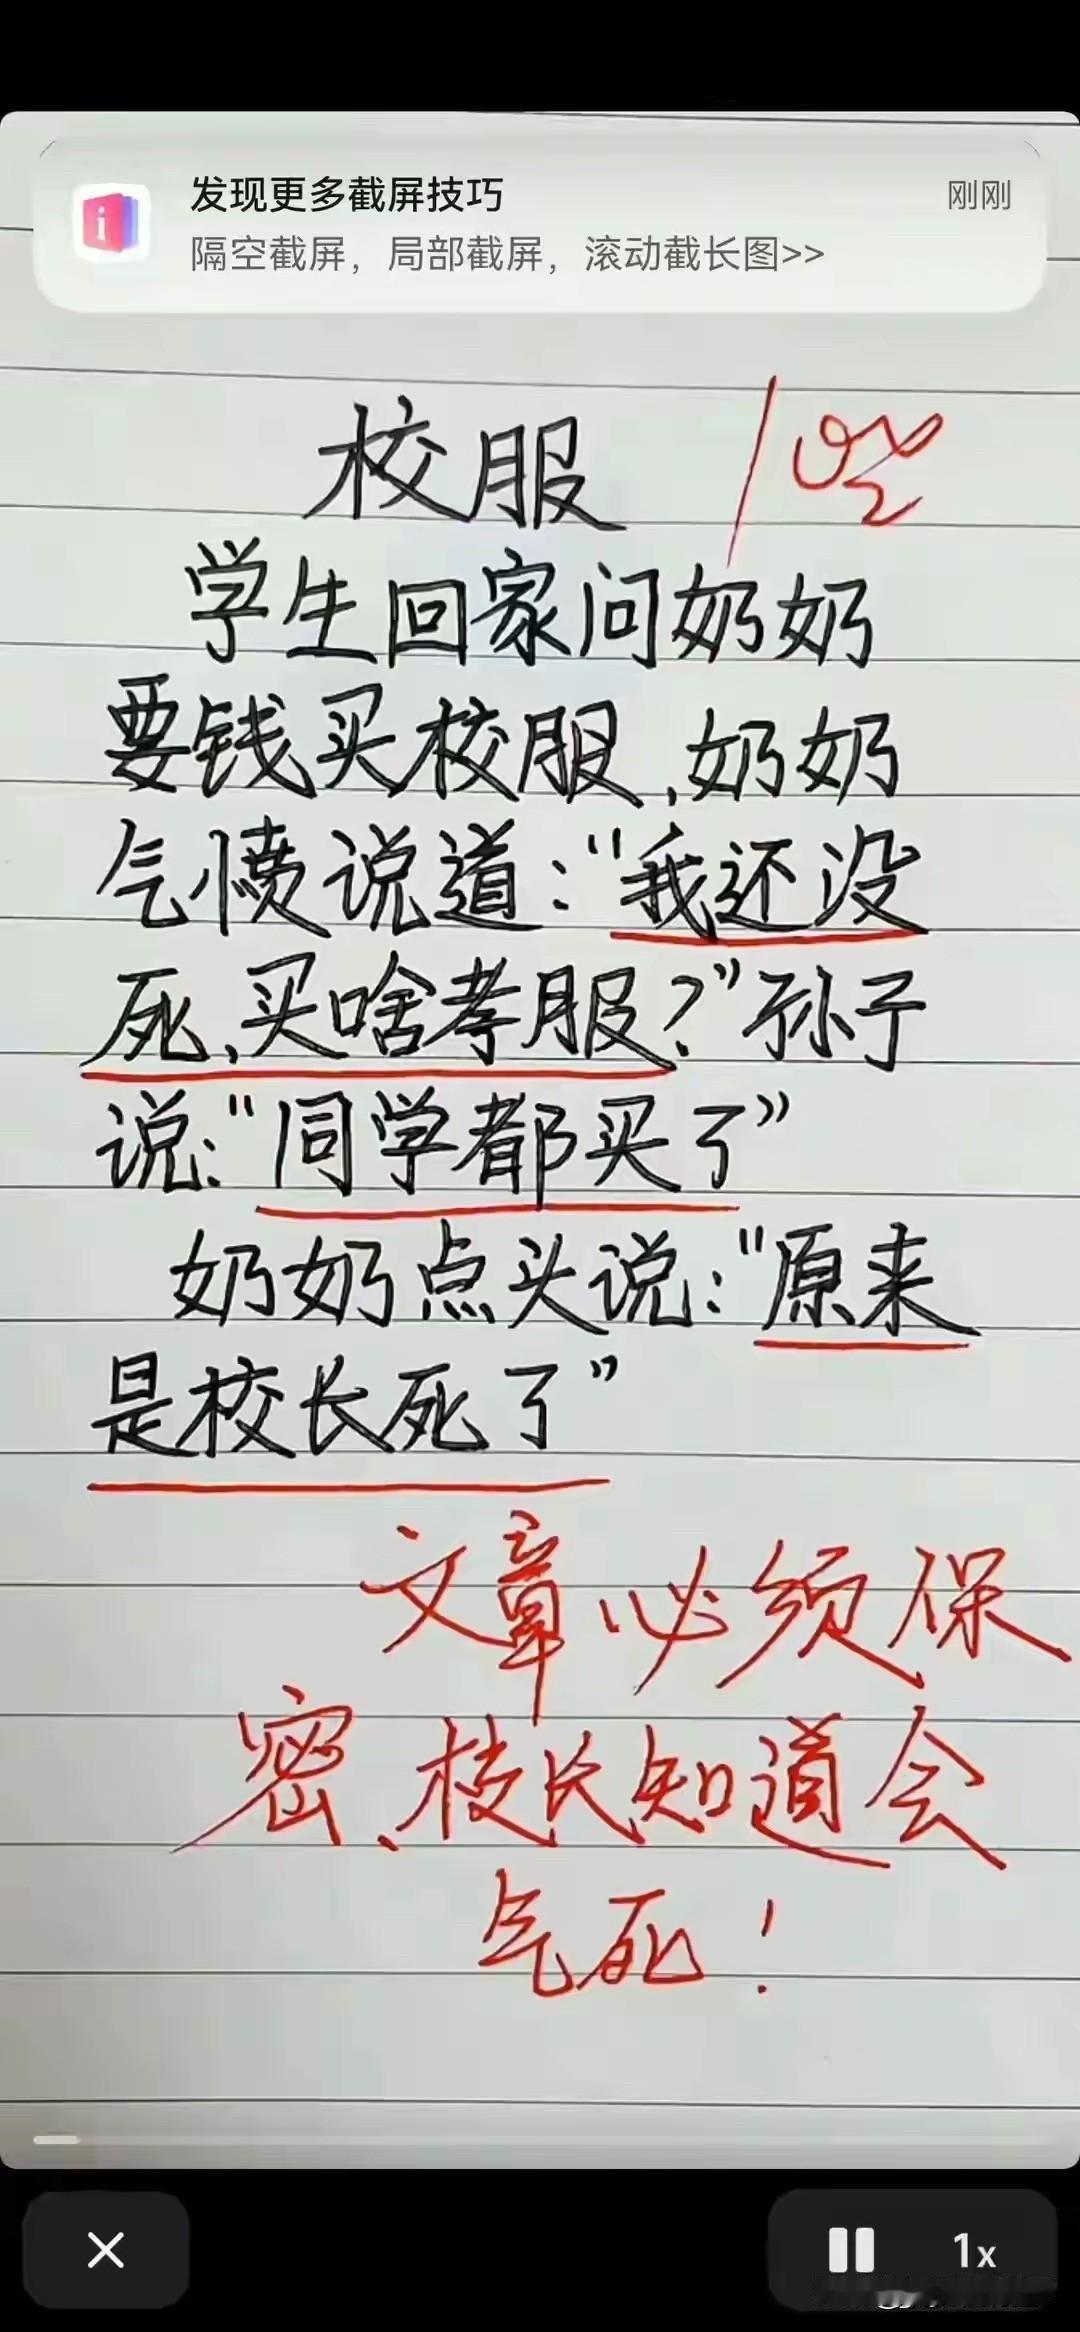 发现更多截屏技巧
刚刚
隔空截屏，局部截屏，滚动截长图>>
校服
学生回家问奶奶
要钱买校服,奶奶
气愤说道:“我还没
死,买啥孝服?”孙子
说:“同学都买了”
奶奶点头说:“原来
是校长死了”
文章必须保
密,校长知道会
气死!
1x